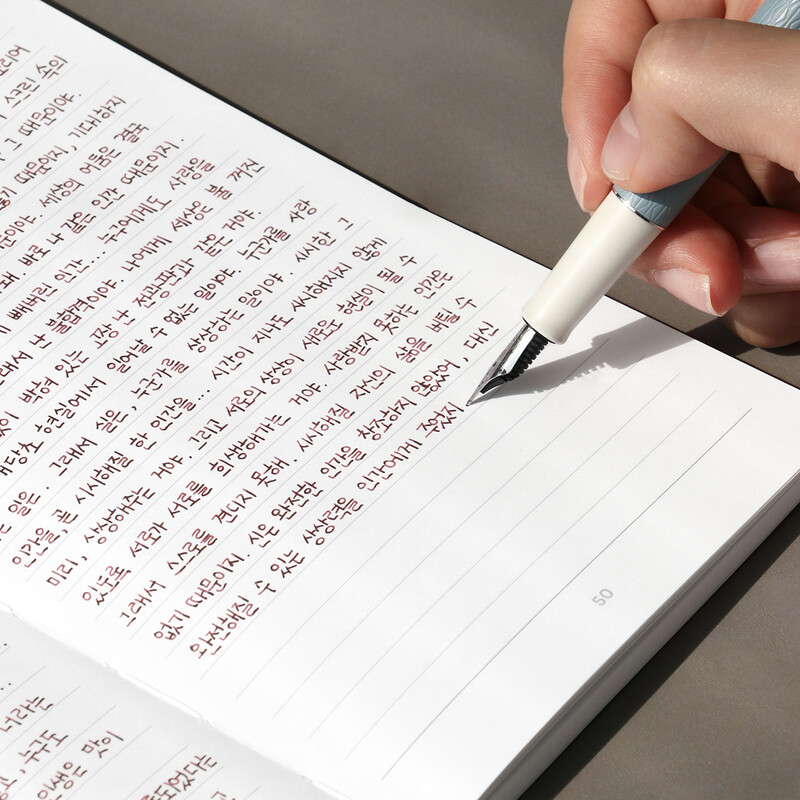 스크린 속의
그 때문이야.
때문이지, 기대하지
세상의 어둠은 결국
바로 나 같은 인간 때문이지.
빼버린 인간... 누구에게도 사랑을
난 불합격이야. 나에게 세상은 불 꺼진
박혀 있는, 고장 난 전광판과 같은 거야.
애당초 현실에서 일어날 수 없는 일이야. 누군가를 사랑
는 일은. 그래서 실은, 누군가를 상상하는 일이야. 시시한 그
인간을, 곧 시시해질 한 인간을... 시간이 지나도 시시해지지 않게
미리, 상상해주는 거야. 그리고 서로의 상상이 새로운 현실이 될 수
있도록 서로가 서로를 희생해가는 거야. 사랑받지 못하는 인간은
그래서 스스로를 견디지 못해. 시시해질 자신의 삶을 버틸 수
없기 때문이지. 신은 완전한 인간을 창조하지 않았어, 대신
완전해질 수 있는 상상력을 인간에게 주었지
50
너라는
누구도
인생은 맛이
되었다는